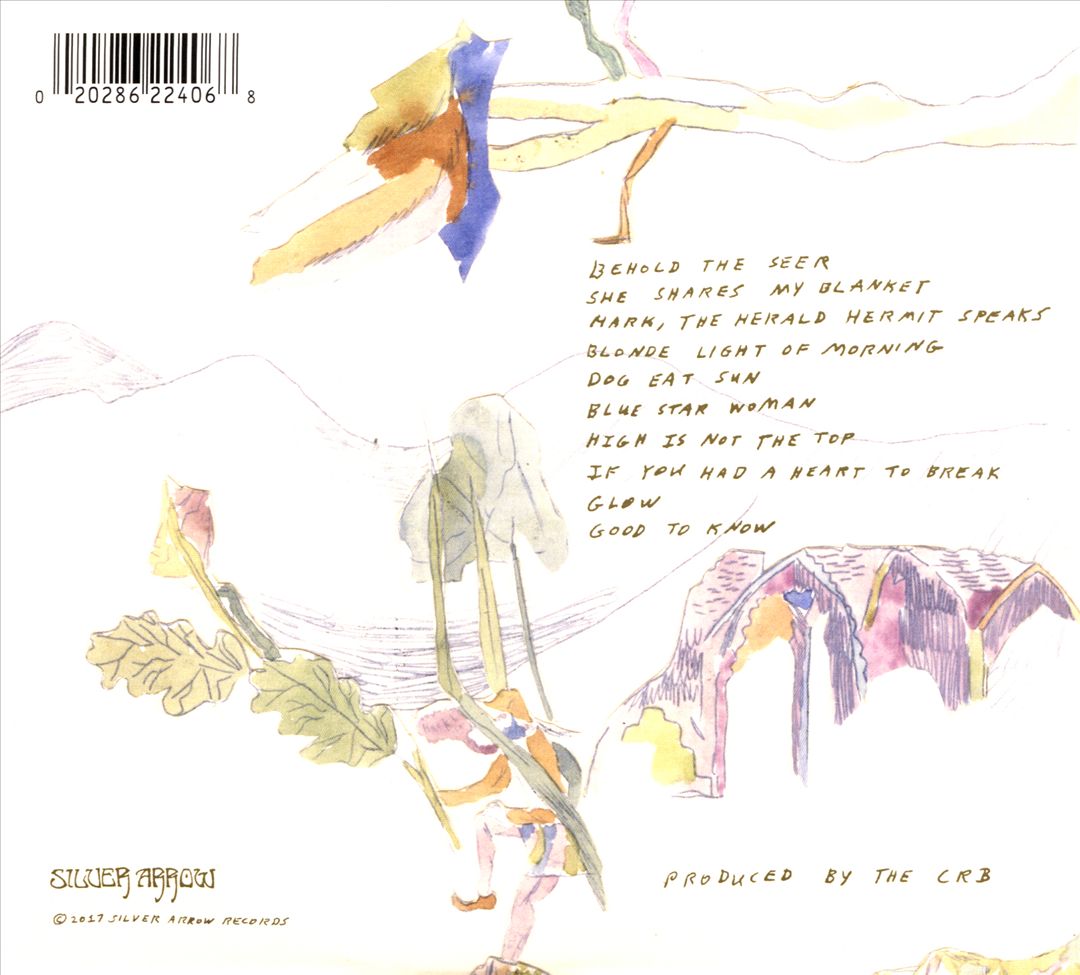 0 20286 22406 8
BEHOLD THE SEER
SHE SHARES MY BLANKET
HARK, THE HERALD HERMIT SPEAKS
BLONDE LIGHT OF MORNING
DOG EAT SUN
BLUE STAR WOMAN
HIGH IS NOT THE TOP
IF YOU HAD A HEART TO BREAK
GLOW
GOOD TO KNOW
SILVER ARROW
© 2017 SILVER ARROW RECORDS
PRODUCED BY THE CRB